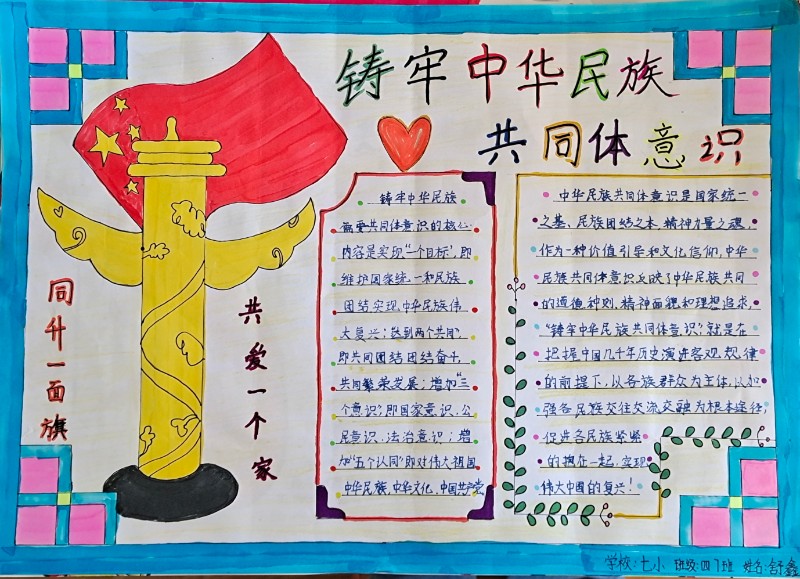 铸牢中华民族
共同体意识
同升一面旗
共爱一个家
铸牢中华民族
需要共同体意识的核心
内容是实现“一个目标”,即
维护国家统一和民族
团结实现中华民族伟
大复兴;达到两个共同”
即共同团结团结奋斗,
共同繁荣发展;增加“三
个意识”;即国家意识,公
民意识,法治意识;增
加“五个认同”即对伟大祖国
中华民族,中华文化,中国共产党
中华民族共同体意识是国家统一
之基、民族团结之本、精神力量之魂,
作为一种价值引导和文化信仰,中华
民族共同体意识反映了中华民族共同
的道德 精神面貌和理想追求,
“铸牢中华民族共同体意识”;就是在
把握中国几千年历史演进客观规律
的前提下,以各族群众为主体,以加
强各民族交往交流交融为根本途径,
促进各民族紧紧
的拥在一起,实现
伟大中国的复兴!
学校:七小 班级:四 班 姓名:舒鑫